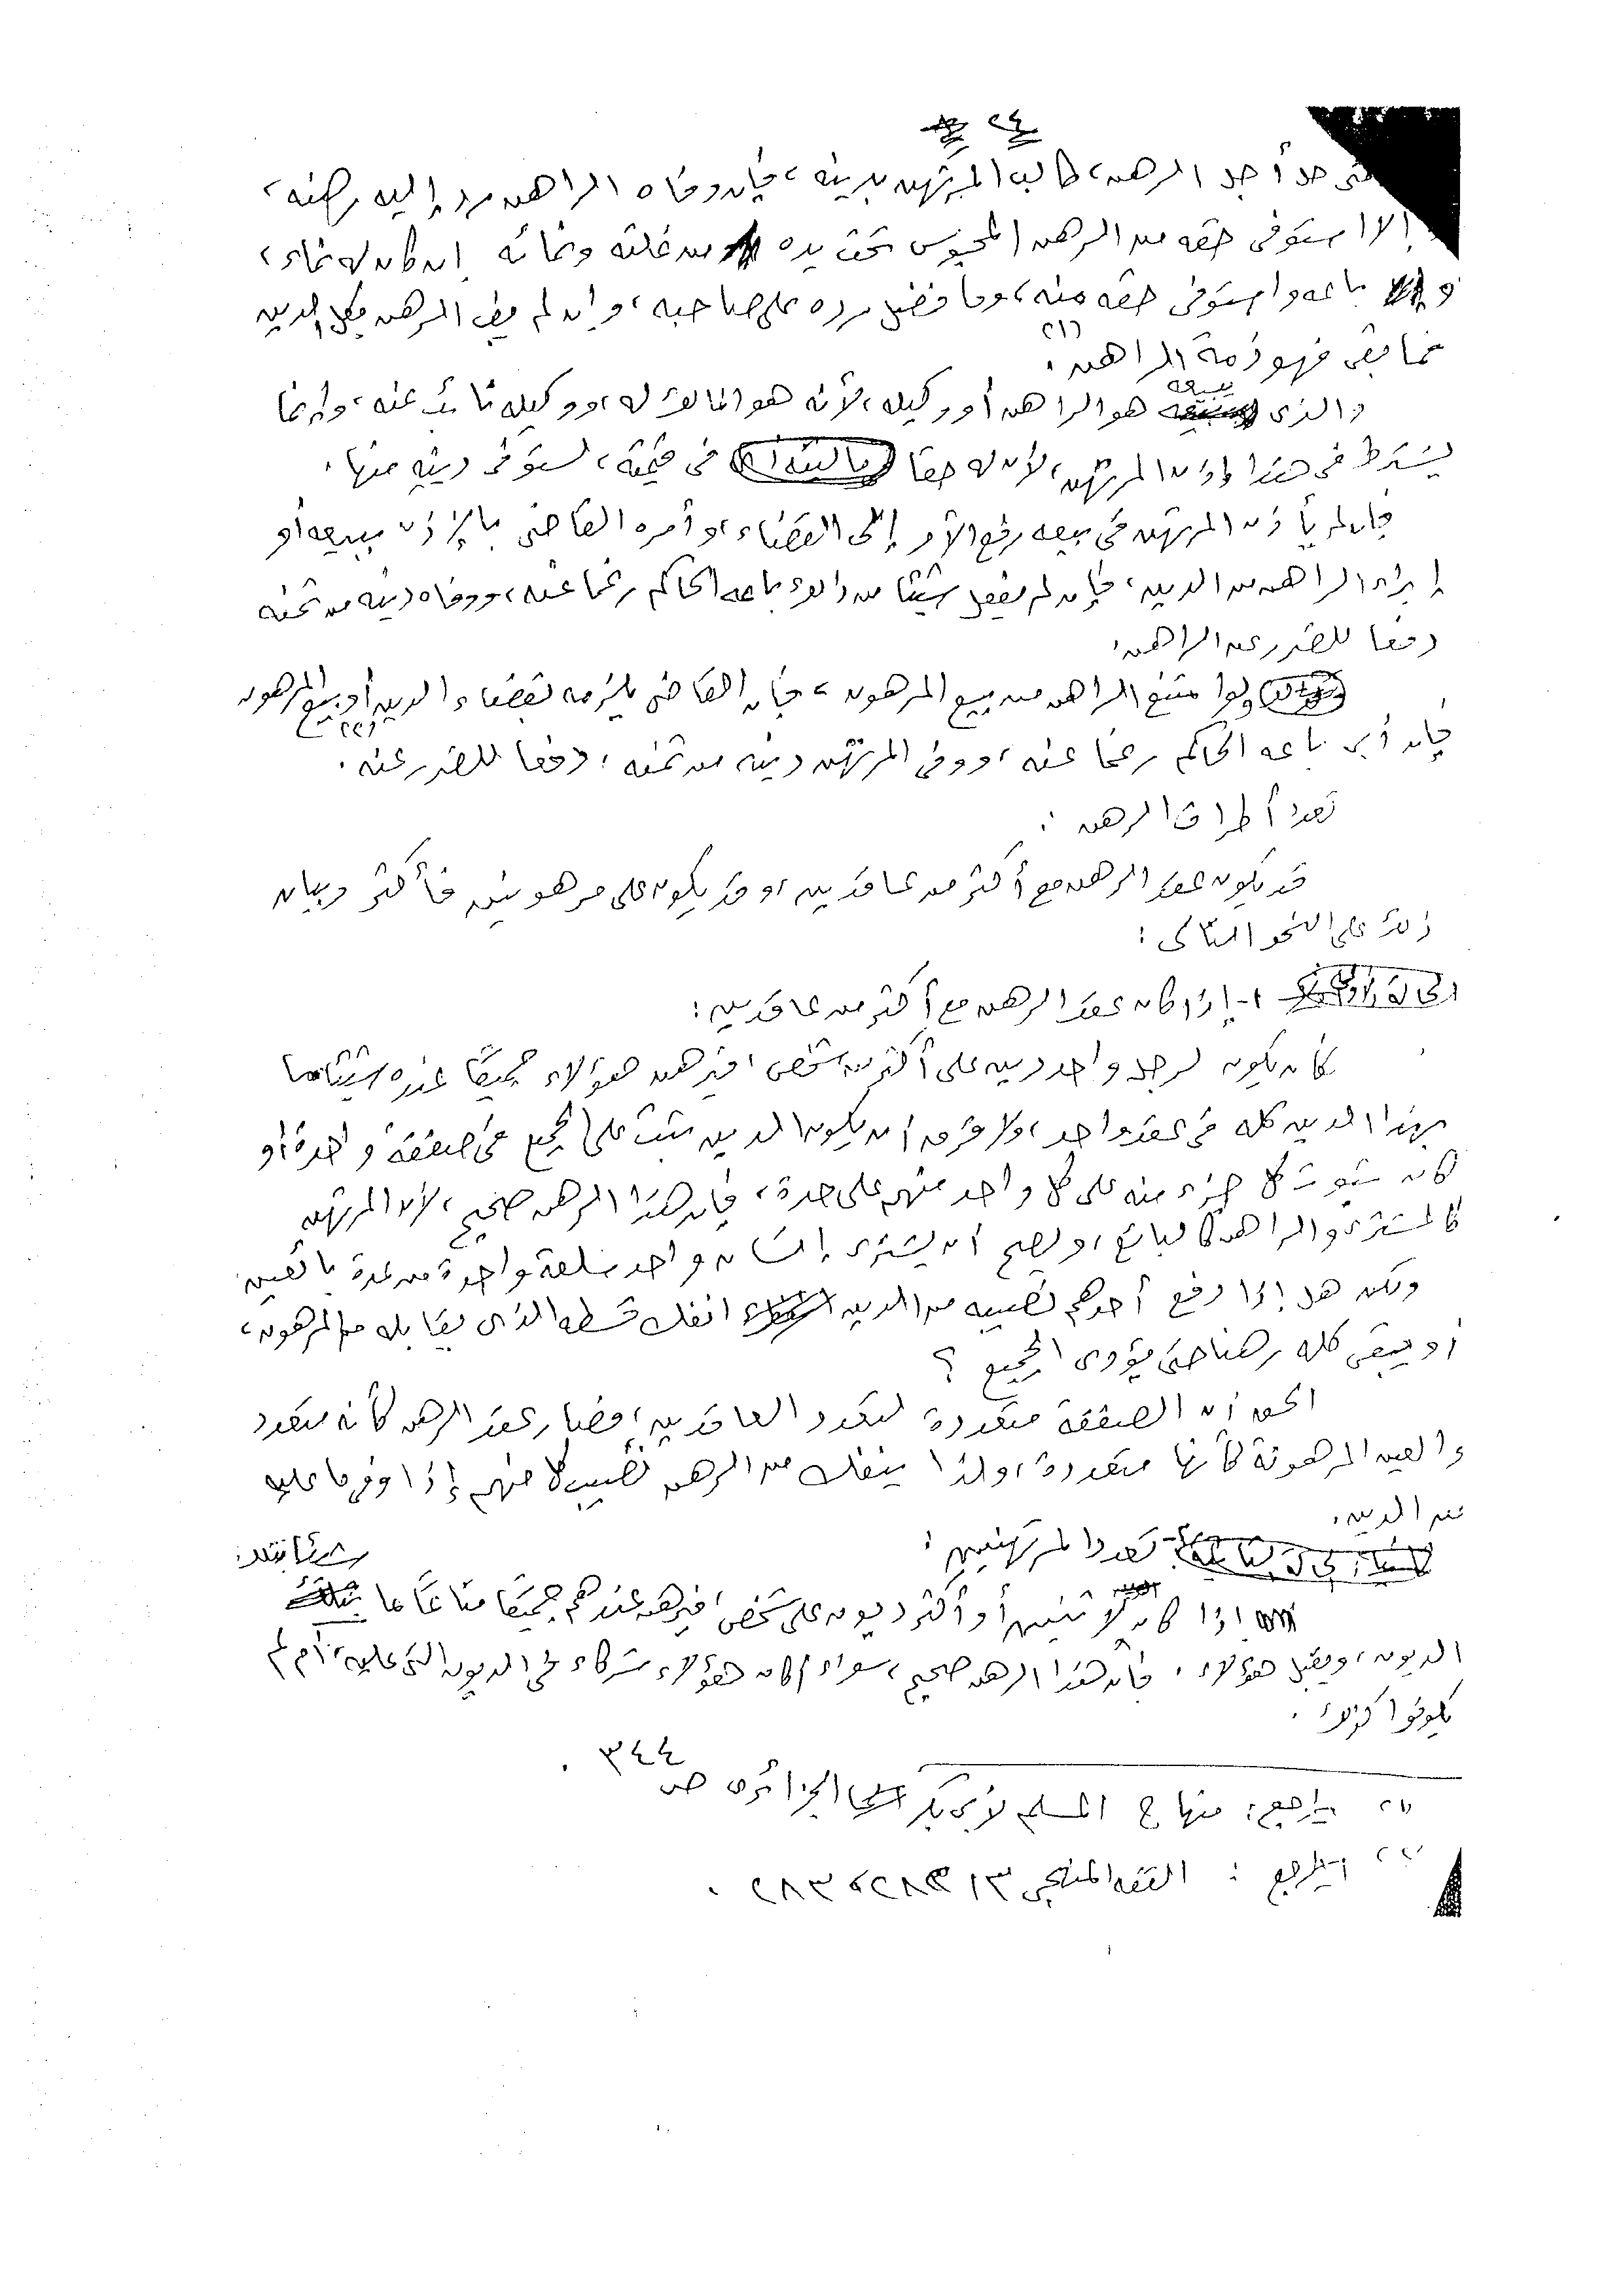 ٢٤
متى حل أجل الرهن، طالب المرتهن بدينه، فإن وفاه الراهن رد إليه رهنه،
إلا استوفى حقه من الرهن المحبوس تحت يده من غلته ونمائه إن كان له نماء،
و باعه واستوفى حقه منه، وما فضل رده على صاحبه، وإن لم يف الرهن بكل الدين
فما بقى فهو ذمة الراهن (١).
والذى يبيعه هو الراهن أو وكيله، لأنه هو المالك له، ووكيله نائب عنه، وإنما
يشترط فى هذا إذن المرتهن، لأن له حقا فى قيمته، ليستوفى دينه منها.
فإن لم يأذن المرتهن فى بيعه رفع الأمر إلى القضاء، وأمره القاضى بالإذن ببيعه أو
إبراء الراهن من الدين، فإن لم يفعل شيئا من ذلك باعه الحاكم رغما عنه، ووفاه دينه من ثمنه
دفعا للضرر عن الراهن.
ولو امتنع الراهن من بيع المرهون، فإن القاضى يلزمه بقضاء الدين أو بيع المرهون
فإن أبى باعه الحاكم رغما عنه، ووفى المرتهن دينه من ثمنه، دفعا للضرر عنه (٢).
تعدد أطراف الرهن :
قد يكون عقد الرهن مع أكثر من عاقدين، وقد يكون على مرهونين فأكثر وبيان
ذلك على النحو التالى :
١- إذا كان عقد الرهن مع أكثر من عاقدين :
كأن يكون لرجل واحد دين على أكثر من شخص، فيرهن هؤلاء جميعًا عنده شيئا ما
بهذا الدين كله فى عقد واحد، ولا فرق أن يكون الدين ثبت على الجميع فى صفقة واحدة أو
كان ثبوت كل جزء منه على كل واحد منهم على حدة، فإن هذا الرهن صحيح، لأن المرتهن
كالمشترى والراهن كالبائع، ويصح أن يشترى إنسان واحد سلعة واحدة من عدة بائعين.
ولكن هل إذا دفع أحدهم نصيبه من الدين انفك قسطه الذى يقابله من المرهون،
أو يبقى كله رهنا حتى يؤدى الجميع ؟
الحق أن الصفقة متعددة لتعدد العاقدين، فصار عقد الرهن كأنه متعدد
والعين المرهونة كأنها متعددة، ولذا ينفك من الرهن نصيب كل منهم إذا وفى ما عليه
من الدين.
تعدد المرتهنين :
إذا كان لاثنين أو أكثر ديون على شخص، فيرهن عندهم جميعًا متاعًا ما
الديون، ويقبل هؤلاء. فإن هذا الرهن صحيح، سواء أكان هؤلاء شركاء فى الديون التى عليه، أم لم
يكونوا كذلك.
(١) يراجع : منهاج المسلم لأبى بكر الجزائرى ص ٣٤٤ .
(٢) يراجع : الفقه المنهجى